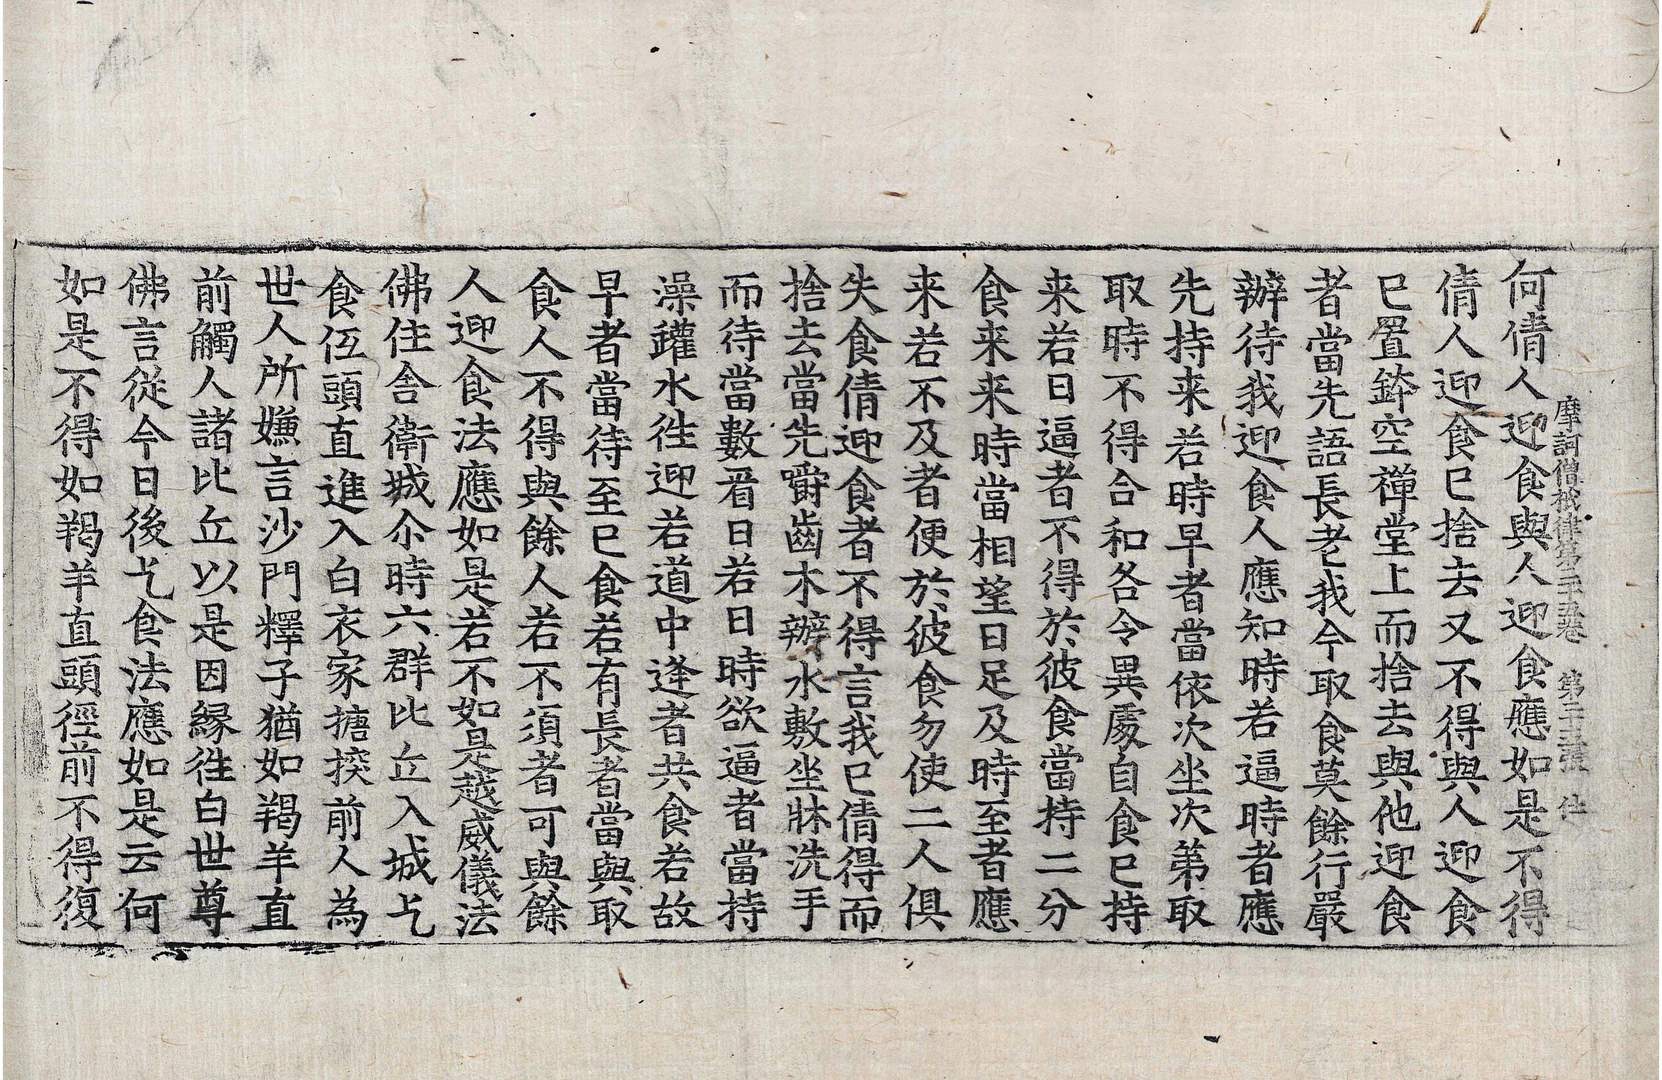 摩訶僧祇律第三十五卷 第二十三張 仕
何倩人迎食與人迎食應如是不得
倩人迎食已捨去又不得與人迎食
已置鉢空禪堂上而捨去與他迎食
者當先語長老我今取食莫餘行嚴
辦待我迎食人應知時若逼時者應
先持来若時早者當依次坐次第取
取時不得合和各令異處自食已持
来若日逼者不得於彼食當持二分
食来来時當相望日足及時至者應
来若不及者便於彼食勿使二人俱
失食倩迎食者不得言我已倩得而
捨去當先嚼齒木辦水敷坐牀洗手
而待當數看日若日時欲逼者當持
澡罐水往迎若道中逢者共食若故
早者當待至已食若有長者當與取
食人不得與餘人若不須者可與餘
人迎食法應如是若不如是越威儀法
佛住舍衛城尒時六群比丘入城乞
食伍頭直進入白衣家搪揬前人為
世人所嫌言沙門釋子猶如羯羊直
前觸人諸比丘以是因緣往白世尊
佛言從今日後乞食法應如是云何
如是不得如羯羊直頭徑前不得復